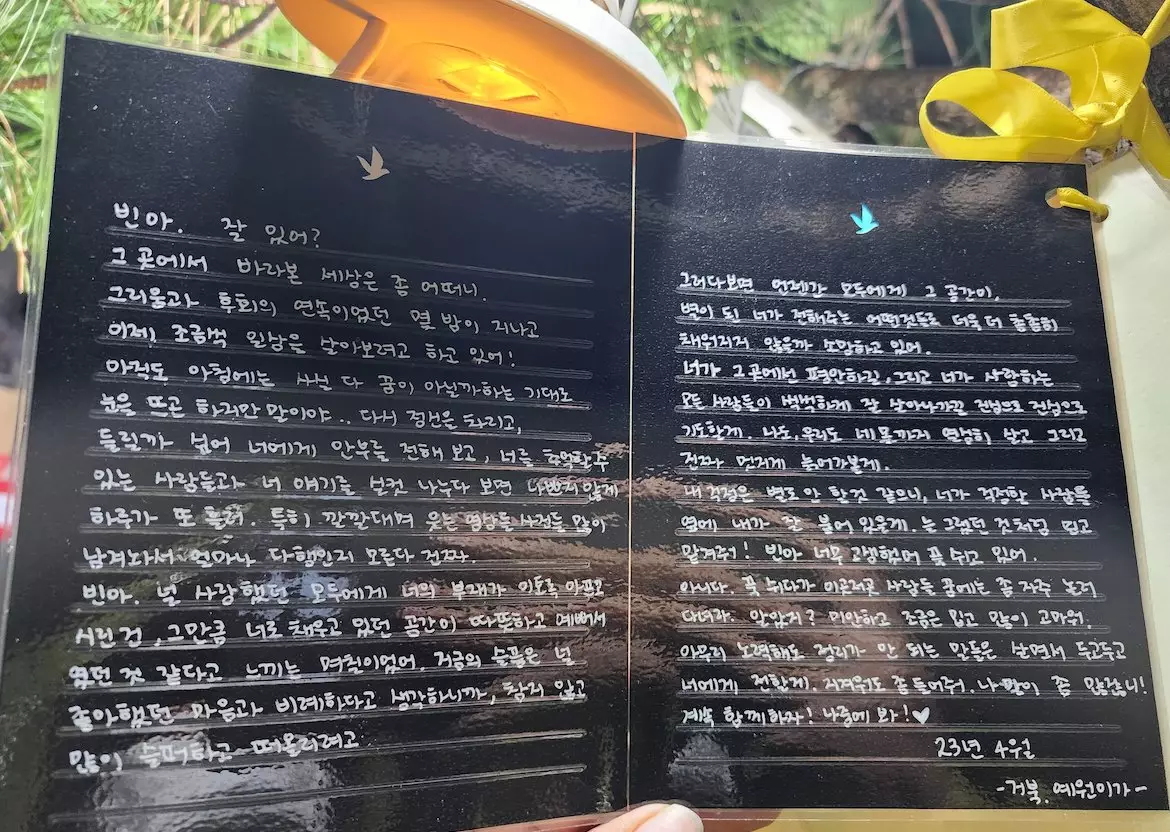 빈아. 잘 있어?
그 곳에서 바라본 세상은 좀 어떠니.
그리움과 후회의 연속이었던 열 밤이 지나고
이제, 조금씩 일상을 살아보려고 하고 있어!
아직도 아침에는 사실 다 꿈이 아닐까하는 기대로
눈을 뜨곤 하지만 말이야.. 다시 정신을 차리고,
들릴까 싶어 너에게 안부를 전해 보고, 너를 추억할 수
있는 사람들과 너 얘기를 실컷 나누다 보면 나쁘지 않게
하루가 또 흘러. 특히 깔깔대며 웃는 영상들 사진들 많이
남겨놔서 얼마나 다행인지 모른다 진짜.
빈아. 널 사랑했던 모두에게 너의 부재가 이토록 아프고
시린 건, 그만큼 너로 채우고 있던 공간이 따뜻하고 예뻐서
였던 것 같다고 느끼는 며칠이었어. 지금의 슬픔은 널
좋아했던 마음과 비례하다고 생각하니까, 참지 않고
많이 슬퍼하고 떠올리려고
그러다보면 언젠간 모두에게 그 공간이,
별이 된 너가 전해주는 어떤것들로 더욱 더 촘촘히
채워지지 않을까 소망하고 있어.
너가 그 곳에선 평안하길, 그리고 너가 사랑하는
모든 사람들이 씩씩하게 잘 살아나가길 진심으로 진심으로
기도할게. 나도, 우리도 네 몫까지 열심히 살고 그리고
진짜 멋지게 늙어가볼게.
내 걱정은 별로 안 할 것 같으니, 너가 걱정할 사람들
옆에 내가 잘 붙어 있을게. 늘 그랬던 것처럼 믿고
맡겨줘! 빈아 너무 고생했어 푹 쉬고 있어.
아니다. 푹 쉬다가 이곳저곳 사람들 꿈에는 좀 자주 놀러
다녀라. 알았지? 미안하고 조금은 밉고 많이 고마워.
아무리 노력해도 정리가 안 되는 말들은 살면서 두고두고
너에게 전할게. 지겨워도 좀 들어줘. 나 말이 좀 많잖니!
계속 함께하자! 나중에 봐!♥
23년 4월
-거북. 예원이가-